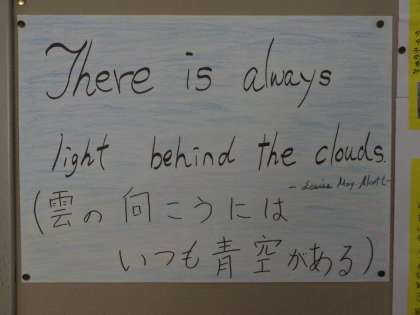 There is always
light behind the clouds.
- Louisa May Alcott -
(雲の向こうには
いつも青空がある)